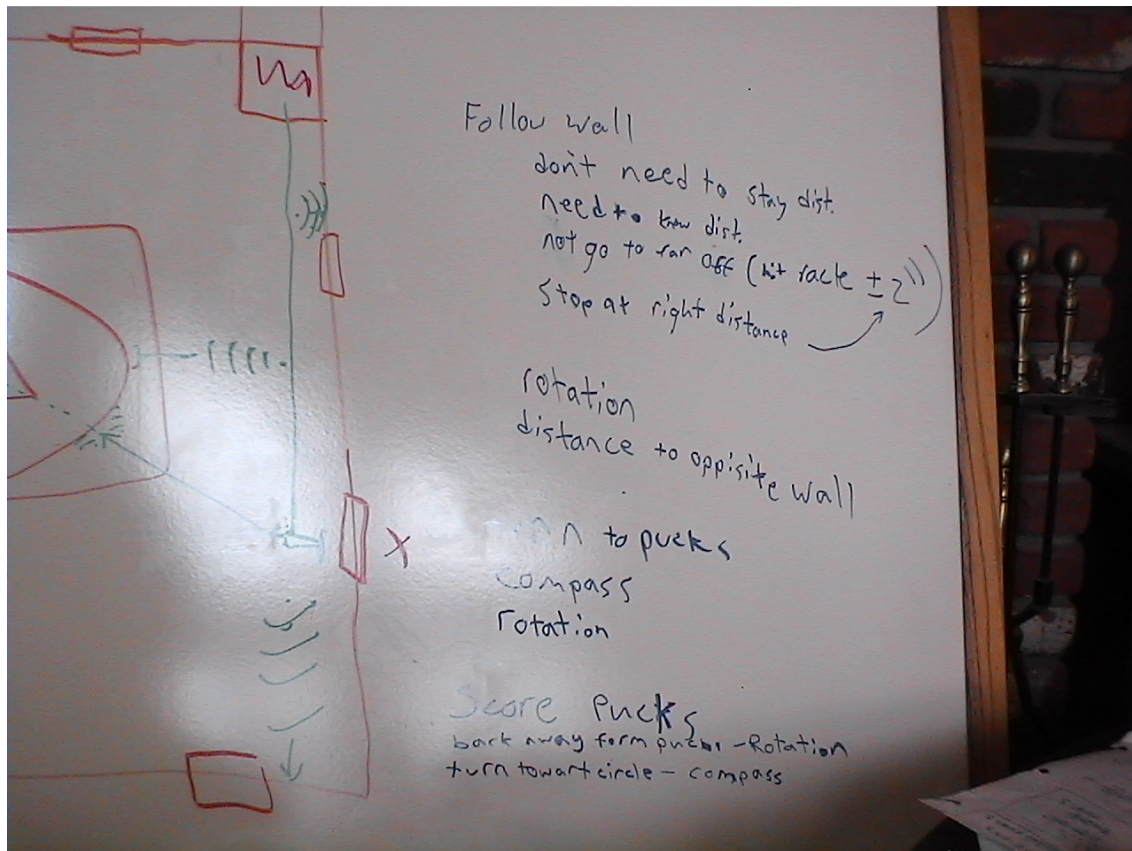 Follow wall
don't need to stay dist.
need to know dist.
not go to far off (hit rack ± 2")
stop at right distance
rotation
distance to oppisite wall
to pucks
compass
rotation
Score Pucks
back away form pucks - Rotation
turn towart circle - compass
X